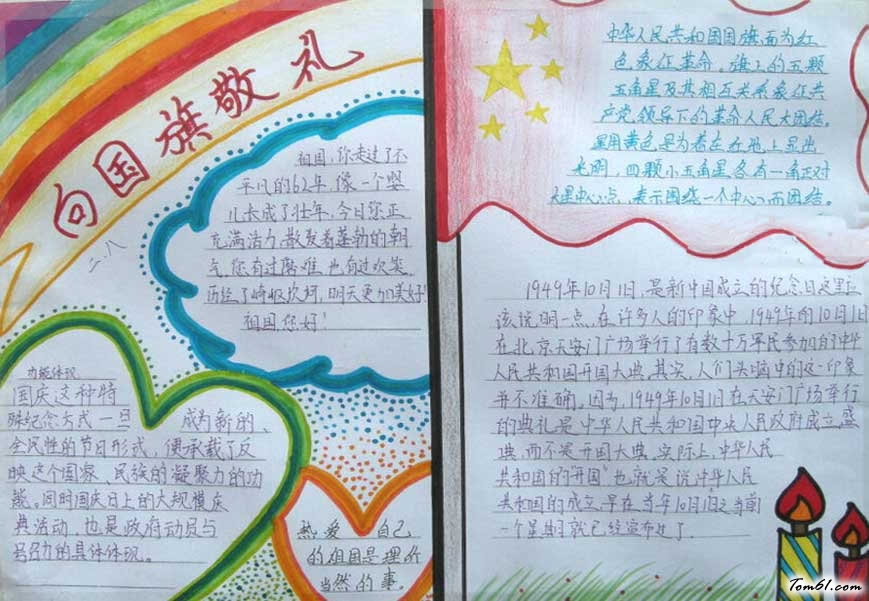 向国旗敬礼
二.八
祖国，你走过了不
平凡的62年，像一个婴
儿长成了壮年，今日您正
充满活力，散发着蓬勃的朝
气，您有过磨难，也有过欢笑，
历经了崎岖坎坷，明天更加美好！
祖国您好！
功能体现
国庆这种特
殊纪念方式一旦 成为新的、
全民性的节日形式，便承载了反
映这个国家、民族的凝聚力的功
能。同时国庆日上的大规模庆
典活动，也是政府动员与
号召力的具体体现。
热爱 自己
的祖国是理所
当然的事。
中华人民共和国国旗面为红
色，象征革命。旗上的五颗
五角星及其相互关系象征共
产党领导下的革命人民大团结。
星用黄色是为着在红地上显出
光明，四颗小五角星各有一角正对
大星中心点，表示围绕一个中心而团结。
1949年10月1日，是新中国成立的纪念日。这里应
该说明一点，在许多人的印象中，1949年的10月1日
在北京天安门广场举行了有数十万军民参加的中华
人民共和国开国大典。其实，人们头脑中的这一印象
并不准确。因为，1949年10月1日在天安门广场举行
的典礼是中华人民共和国中央人民政府成立盛
典，而不是开国大典。实际上，中华人民
共和国的"开国"，也就是说中华人民
共和国的成立，早在当年10月1日之前
一个星期就已经宣布过了。
Tom61.com